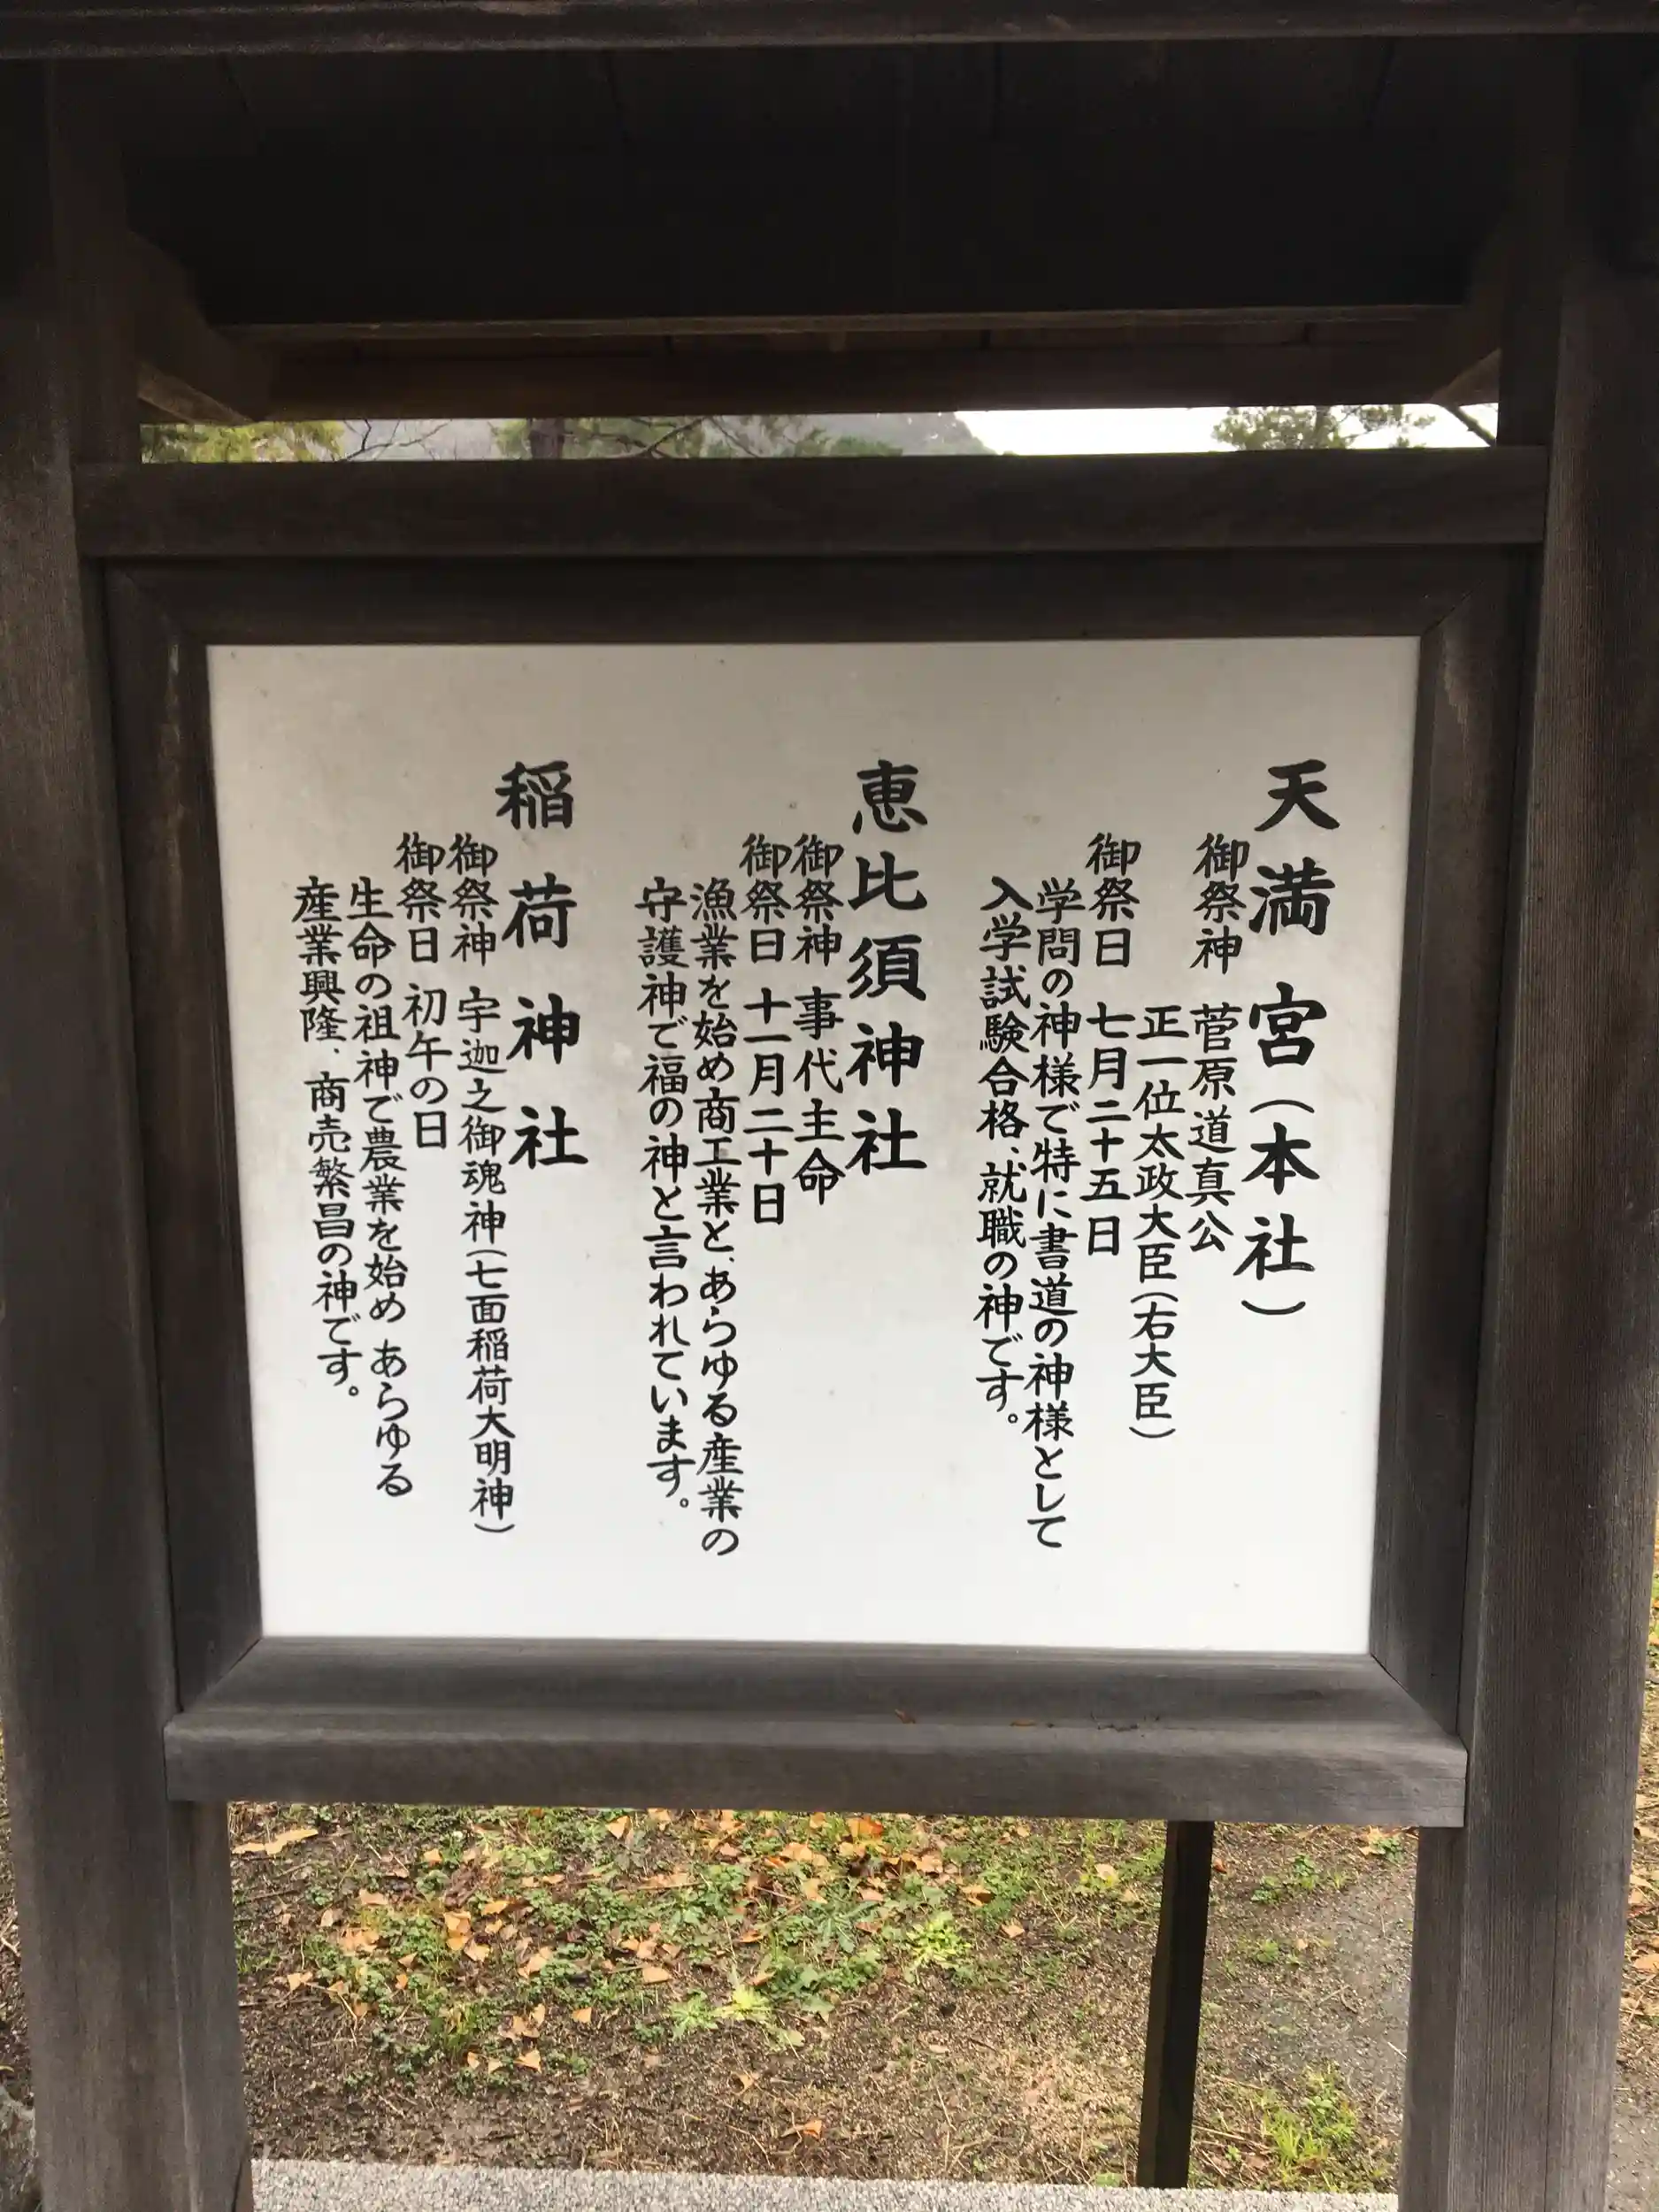 天満宮（本社）
御祭神 菅原道真公
正一位太政大臣（右大臣）
御祭日 七月二十五日
学問の神様で特に書道の神様として
入学試験合格、就職の神です。
恵比須神社
御祭神 事代主命
御祭日 十一月二十日
漁業を始め商工業と、あらゆる産業の
守護神で福の神と言われています。
稲荷神社
御祭神 宇迦之御魂神（七面稲荷大明神）
御祭日 初午の日
生命の祖神で農業を始め あらゆる
産業興隆、商売繁昌の神です。